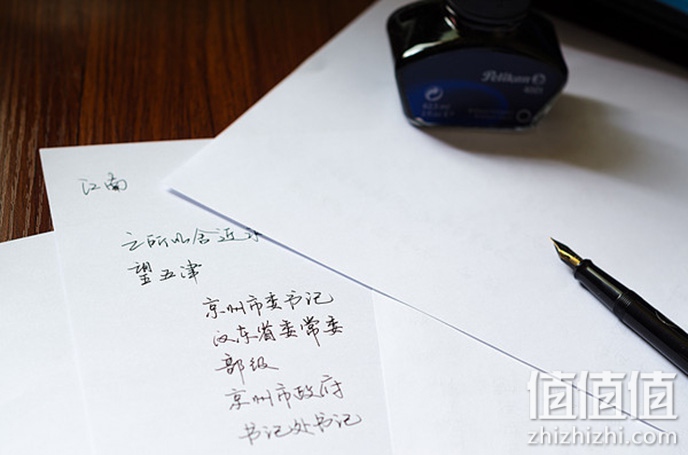 江南
之所以含近
望五津
京州市委书记
汉东省委常委
部级
京州市政府
书记处书记
Pelikan
4001
值值值
zhizhizhi.com